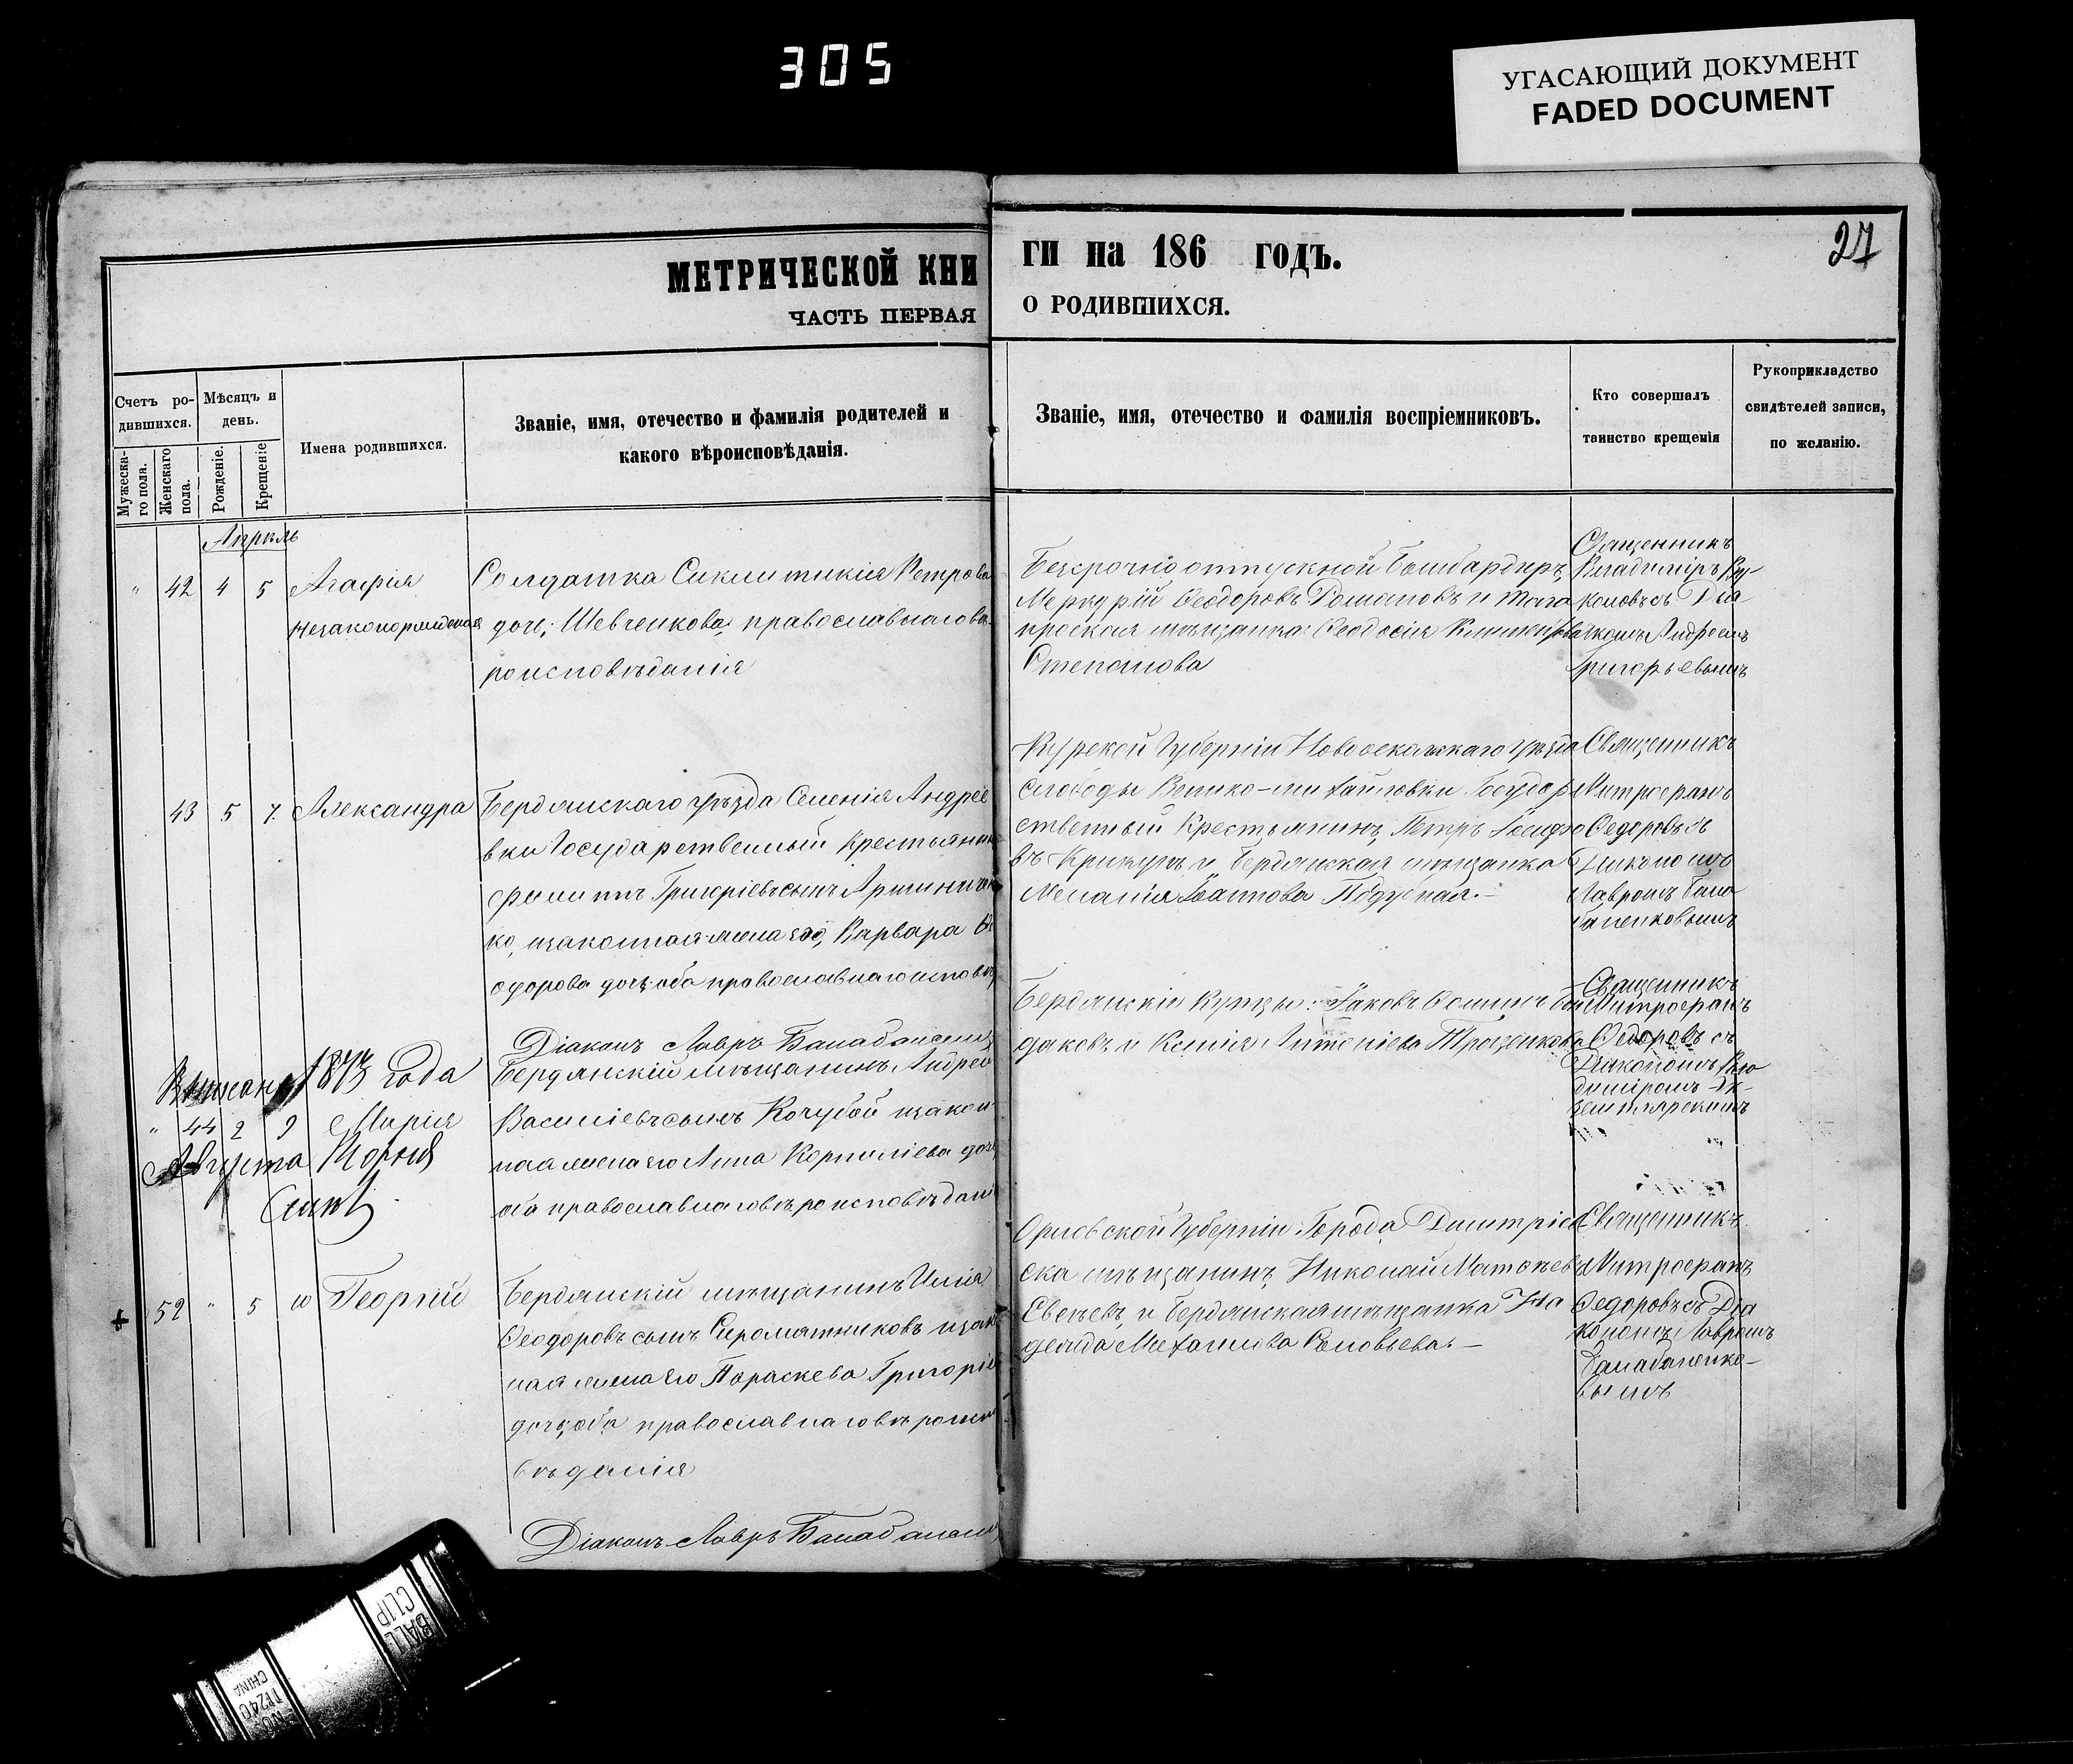 305
УГАСАЮЩИЙ ДОКУМЕНТ
FADED DOCUMENT
27
МЕТРИЧЕСКОЙ КНИ
ГИ на 186 ГОДЪ.
ЧАСТЬ ПЕРВАЯ
О РОДИВШИХСЯ.
Счетъ ро-
дившихся.
Мужеска-
го пола.
Женскаго
пола.
Мѣсяцъ и
день.
Рожденіе.
Крещеніе
Имена родившихся.
Званіе, имя, отечество и фамилія родителей и
какого вѣроисповѣданія.
Званіе, имя, отечество и фамилія воспріемниковъ.
Кто совершалъ
таинство крещенія
Рукоприкладство
свидѣтелей записи,
по желанію.
Апрѣль
" 42 4 5 Агафія
незаконорожденая
Солдатка Синклитикія Петрова
дочь, Шевченкова, православнаго вѣ
роисповѣданія
Безсрочноотпускной Бомбардиръ,
Меркурій Феодоровъ Романовъ и Тага
нрогская мѣщанка: Феодосія
Степанова
Священникъ
Владиміръ
съ Діа
Андреемъ
Григорьевымъ
43 5 7 Александра
Бердянскаго уѣзда Селенія Андрее
вки Государственный Крестьянинъ
Филиппъ Григоріевъ сынъ
ко, и законная жена его, Варвара Ѳе
одорова дочь, оба православнаго исповѣ
Діаконъ Лавръ Балабаненко
Курской Губерніи Новооскольскаго уѣзда
слободы Велико-михайловки Государ
ственный Крестьянинъ, Петръ Іосифо
въ и Бердянская мѣщанка
Меланія Іванова
Священникъ
Митрофанъ
Федоровъ съ
Діакономъ
Лавромъ Бала
баненковымъ
1873 года
" 44 2 9 Марія
Августа
Бердянскій мѣщанинъ Андрей
Васильевъ сынъ Кочубей и закон
ная жена его Анна Корниліева дочь
оба православнаго вѣроисповѣдані
Бердянскіе Купцы: Іаковъ
даковъ и Ксенія Антоніева Троценкова
Священникъ
Митрофанъ
Федоровъ съ
Діакономъ Вла
диміромъ
52 " 5 10 Георгій
Бердянскій мѣщанинъ Илія
Феодоровъ сынъ Сыромятниковъ и зак
ная жена его Параскева Григорі
дочь, оба православнаго вѣроиспо
вѣданія
Діаконъ Лавръ Балабаненко
Орловской Губерніи Города Дмитріев
ска мѣщанинъ, Николай Матвѣевъ
и Бердянская мѣщанка На
дежда Михайлова Соловьева.
Священникъ
Митрофанъ
Федоровъ съ Діа
кономъ Лавромъ
Балабаненко-
вымъ